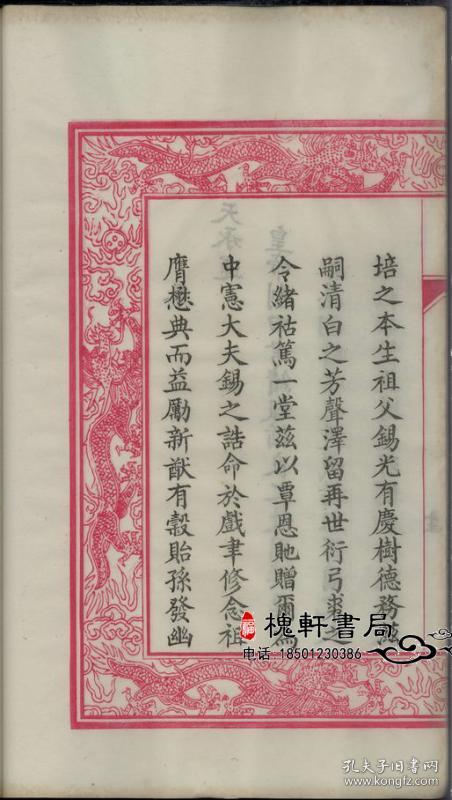 培之本生祖父錫光有慶樹德務滋
嗣清白之芳聲澤留再世衍弓裘之
令緒祜篤一堂茲以覃恩貤贈爾爲
中憲大夫錫之誥命於戲聿修念祖
膺懋典而益勵新猷有穀貽孫發幽
槐軒書局
电话 18501230386
孔夫子旧书网